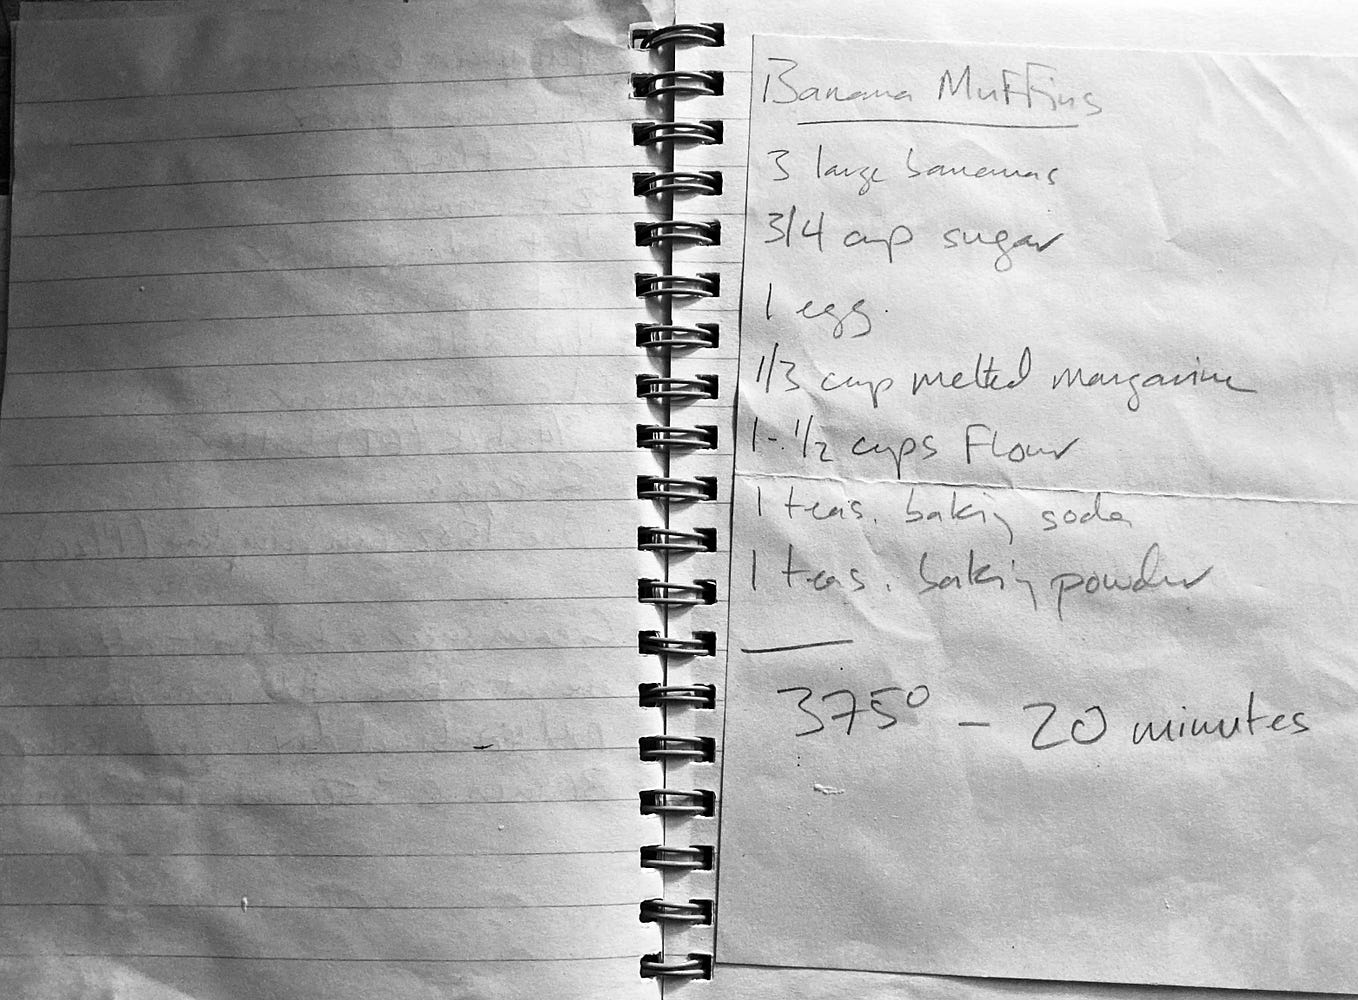 Banana Muffins
3 large bananas
3/4 cup sugar
1 egg.
1/3 cup melted margarine
1-1/2 cups Flour
1 teas. baking soda
1 teas. baking powder
375° - 20 minutes